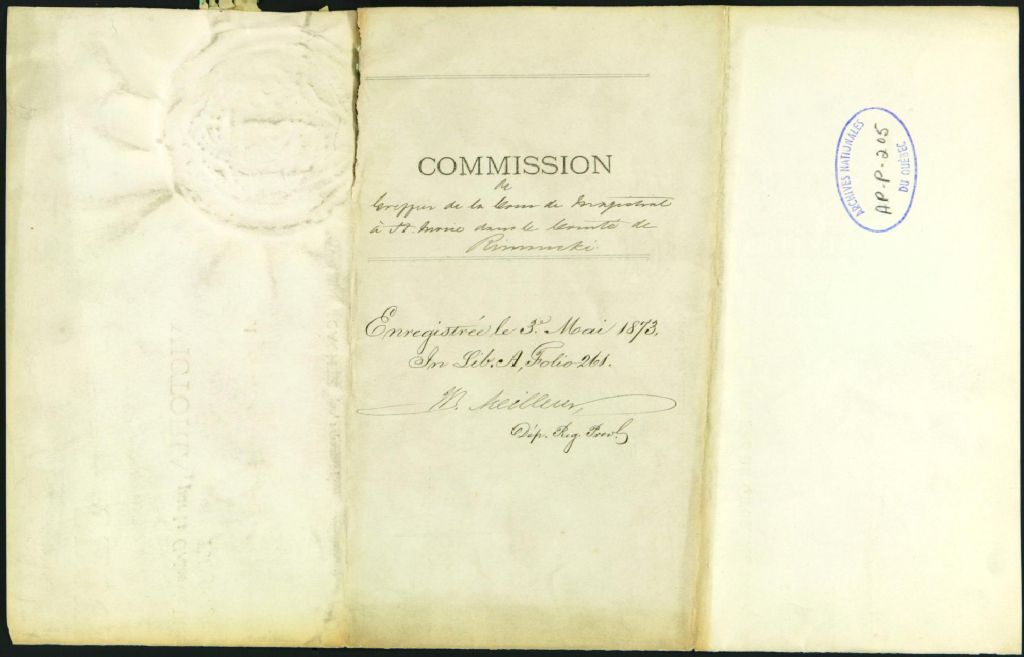 COMMISSION
de
Greffier de la Cour de Magistrat
à St. dans le Comté de
Rimouski.
Enregistrée le 3e. Mai 1873,
In Lib. A, Folio 261.
Meilleur,
Dép. Rég. Provl.
ARCHIVES NATIONALES
AP-P-205
DU QUÉBEC
VICTORIA